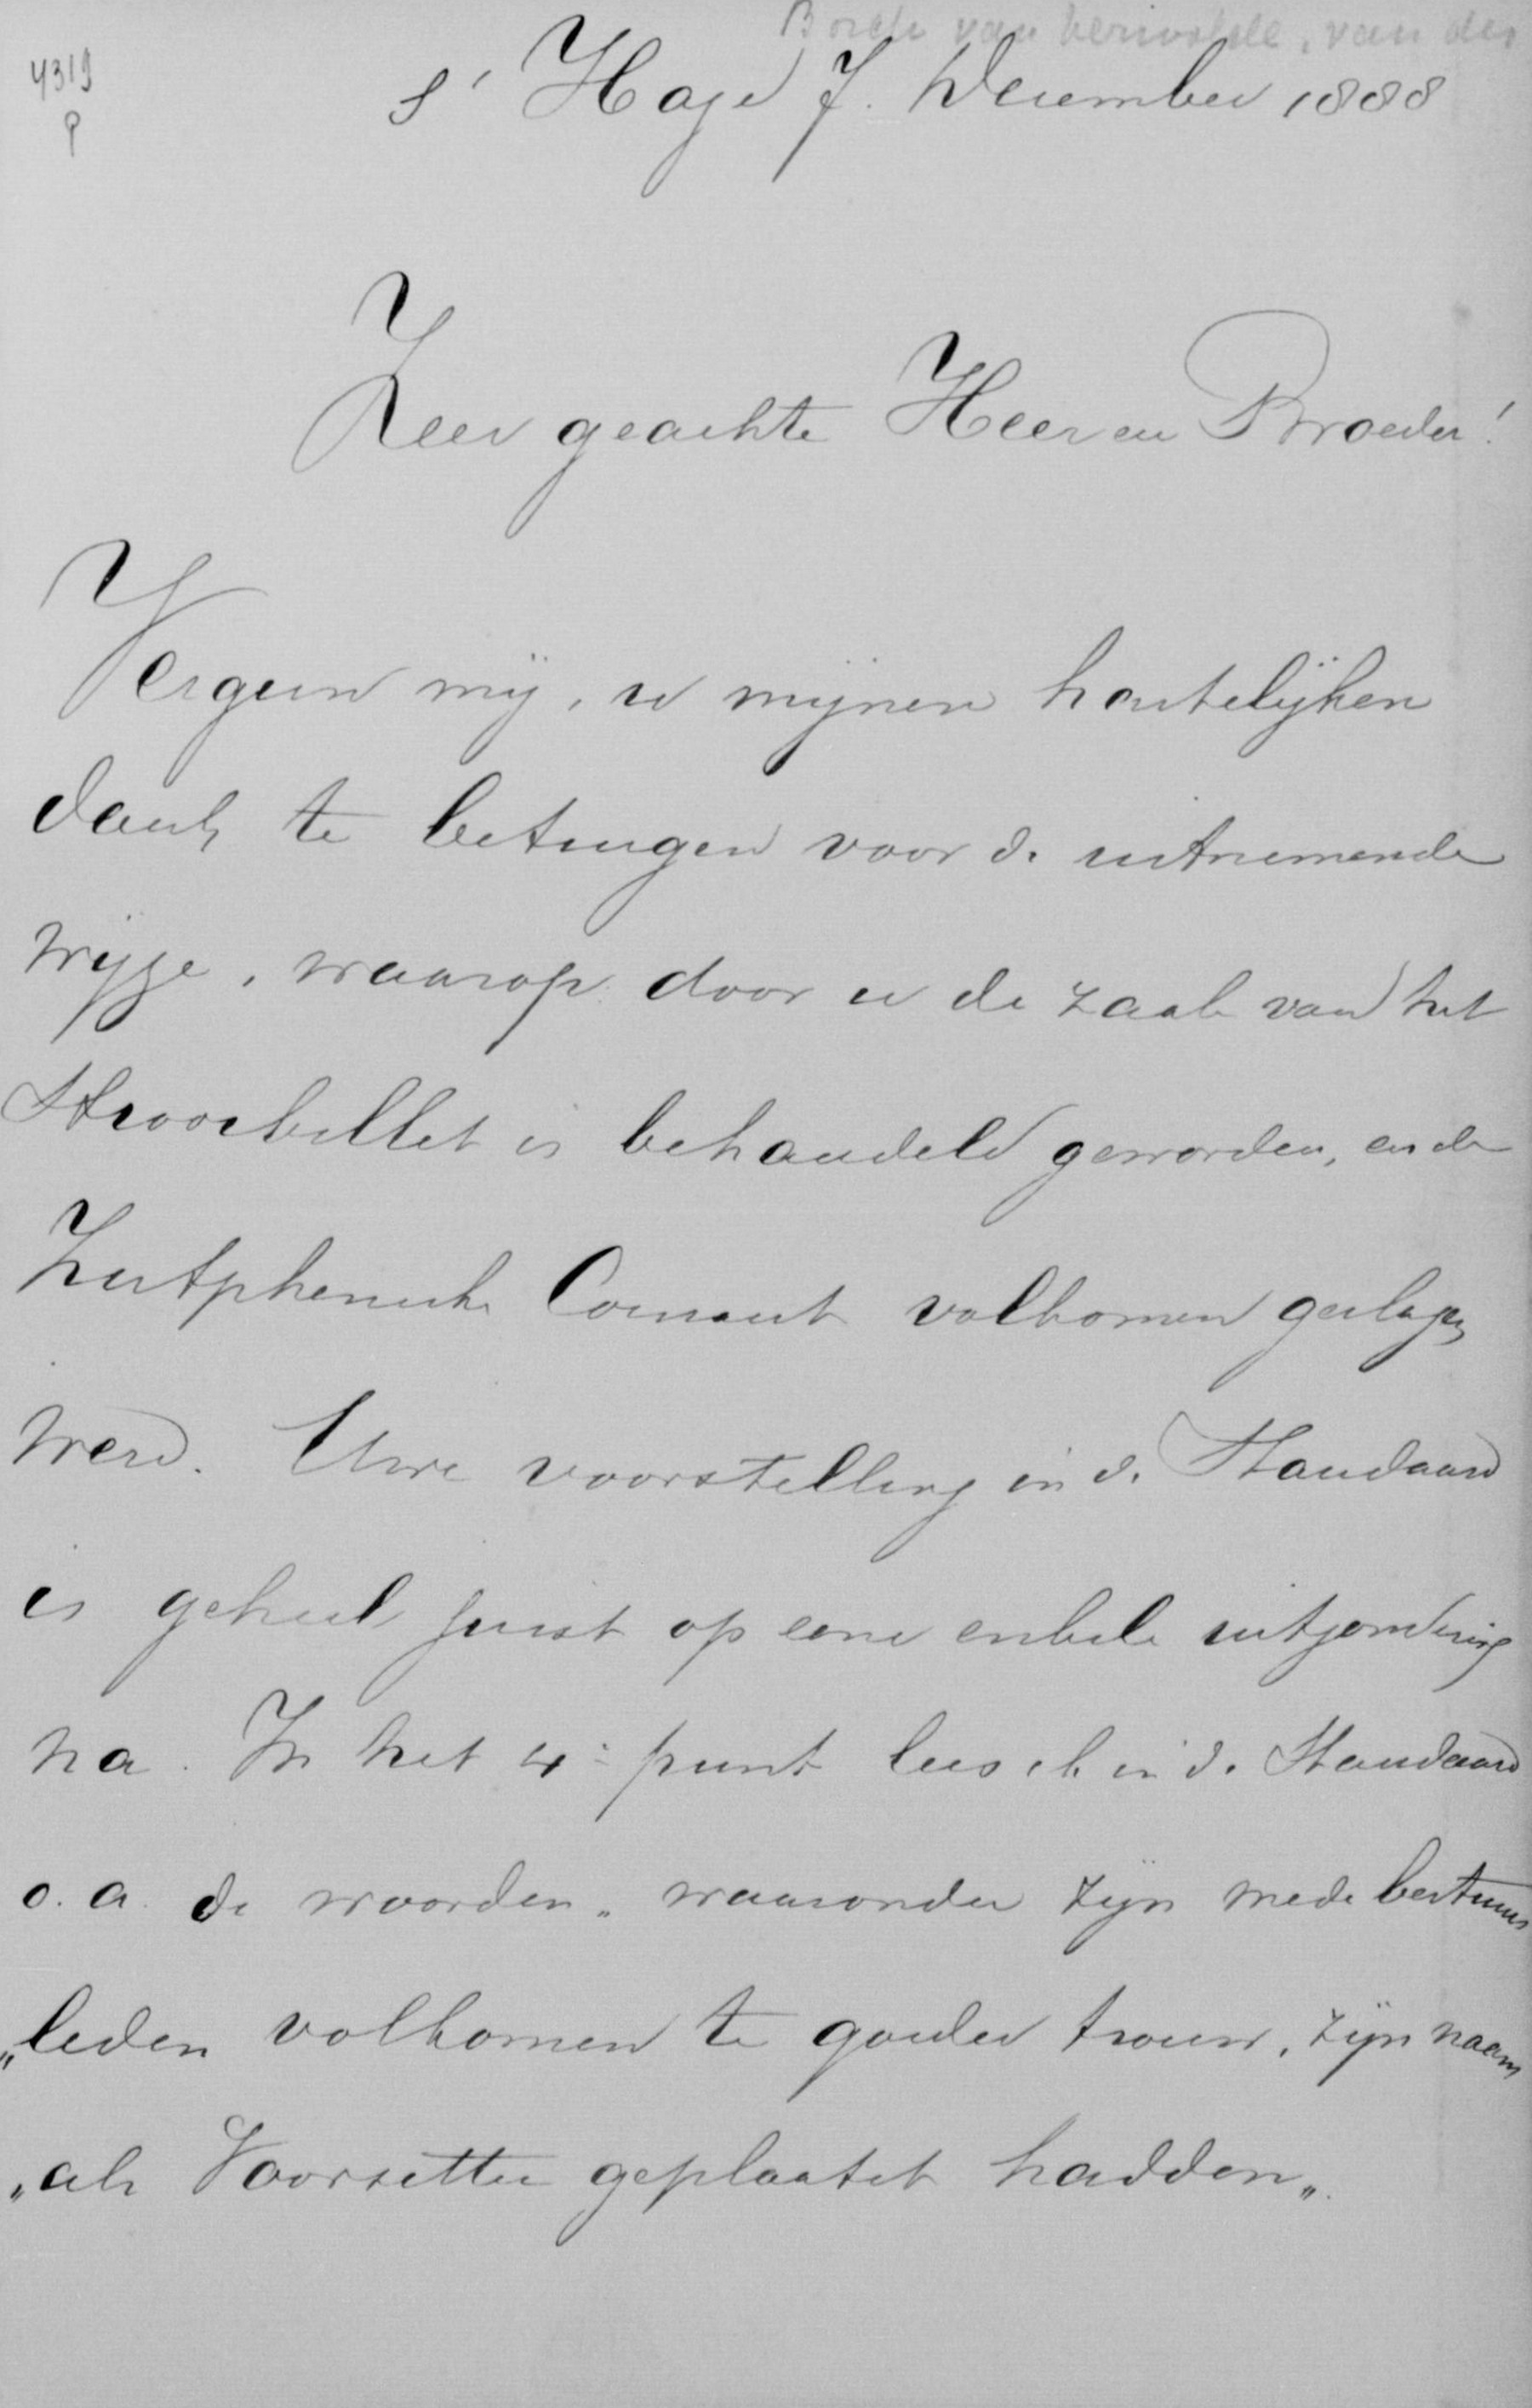 Borch van Verwolde, van der
4319
P
s' Hage 7. December 1888
Zeer geachte Heer en Broeder!
Vergun mij, u mijnen hartelijken
dank te betuigen voor de uitnemende
wijze, waarop door u de zaak van het
strooibillet is behandeld geworden, en de
Zutphensche Courant volkomen geslagen
werd. Uwe voorstelling in de Standaard
is geheel juist op eene enkele uitzondering
na. In het 4e punt lees ik in de Standaard
o.a. de woorden „waaronder zijn mede bestuurs
„leden volkomen te goeder trouw, zijn naam
„als Voorzitter geplaatst hadden„.